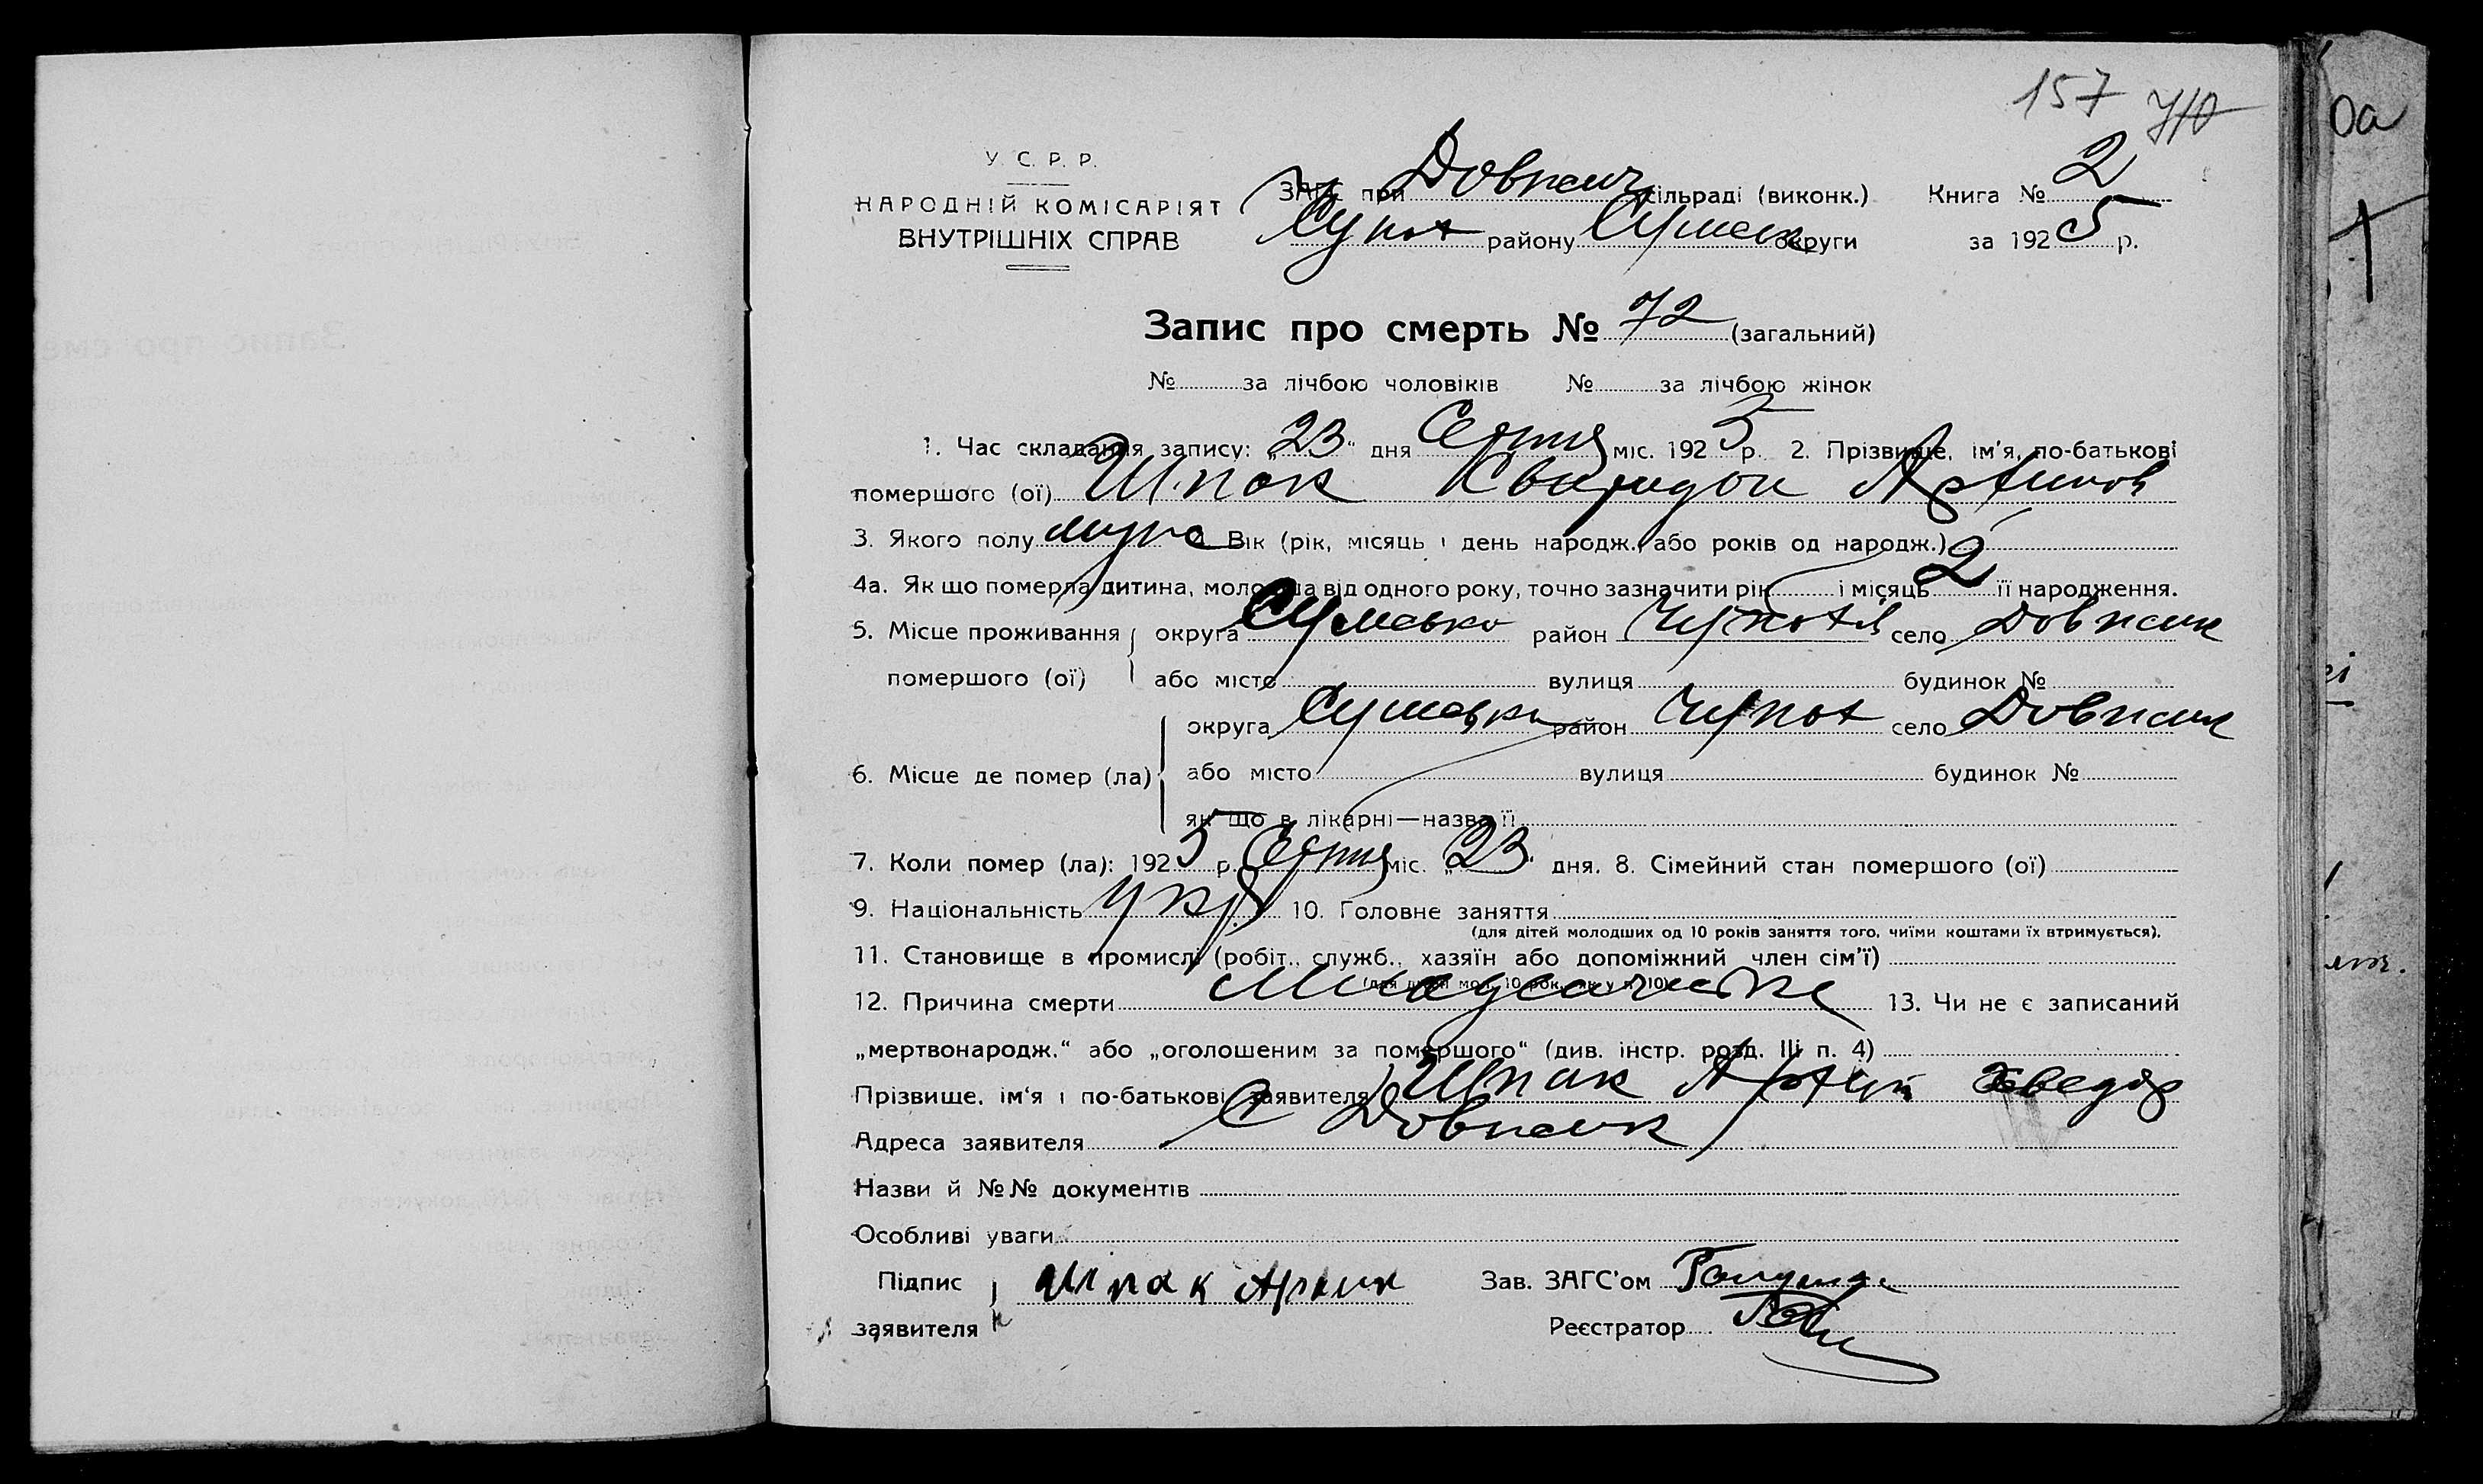 157 710
У. С. Р. Р.
НАРОДНІЙ КОМІСАРІЯТ
ВНУТРІШНІХ СПРАВ
ЗАГС при Довжич сільраді (виконк.) Книга № 2
району Сумськ округи за 1925 р.
Запис про смерть № 72 (загальний)
№ за лічбою чоловіків № за лічбою жінок
1. Час складання запису: „23“ дня Серпня міс. 1925 р. 2. Прізвище, ім'я, по-батькові
помершого (ої) Шпак Свиридон Артимов
3. Якого полу муж 4. Вік (рік, місяць і день народж., або років од народж.)
4а. Як що померла дитина, молодша від одного року, точно зазначити рік і місяць 2 її народження.
5. Місце проживання округа Сумська район село Довжик
помершого (ої) або місто вулиця будинок №
округа Сумська район село Довжик
6. Місце де помер (ла) або місто вулиця будинок №
як що в лікарні—назва її
7. Коли помер (ла): 1925 р. Серпня міс. „23“ дня. 8. Сімейний стан помершого (ої)
9. Національність укр 10. Головне заняття
(для дітей молодших од 10 років заняття того, чиїми коштами їх втримується).
11. Становище в промислі (робіт., служб., хазяїн або допоміжний член сім'ї)
(для дітей мол. 10 рок. як у п. 10)
12. Причина смерти 13. Чи не є записаний
„мертвонародж.“ або „оголошеним за помершого“ (див. інстр. розд. III п. 4)
Прізвище, ім'я і по-батькові заявителя Шпак Артим
Адреса заявителя С Довжик
Назви й №№ документів
Особливі уваги
Підпис Шпак Артим Зав. ЗАГС'ом
заявителя Реєстратор